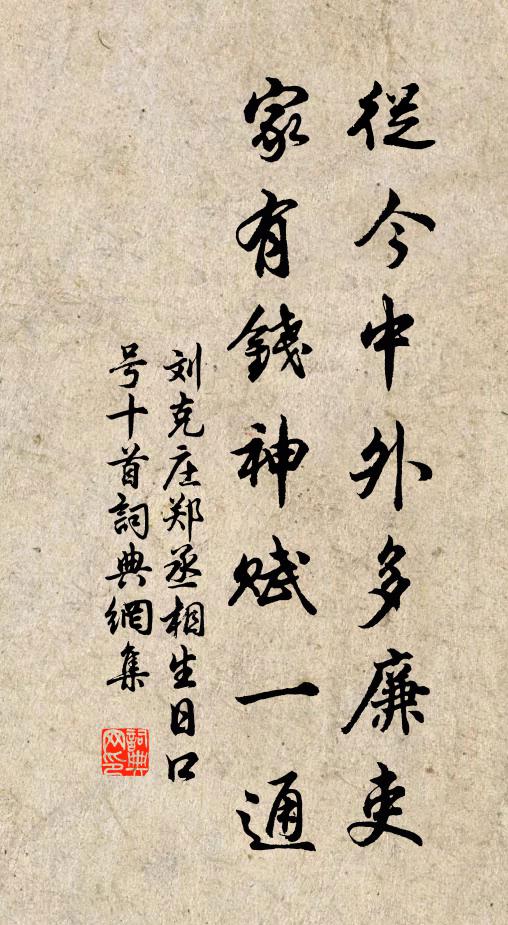 從今中外多廉吏
家有錢神賦一通
刘克庄郑丞相生日口
号十首詞典網集
詞典
网印